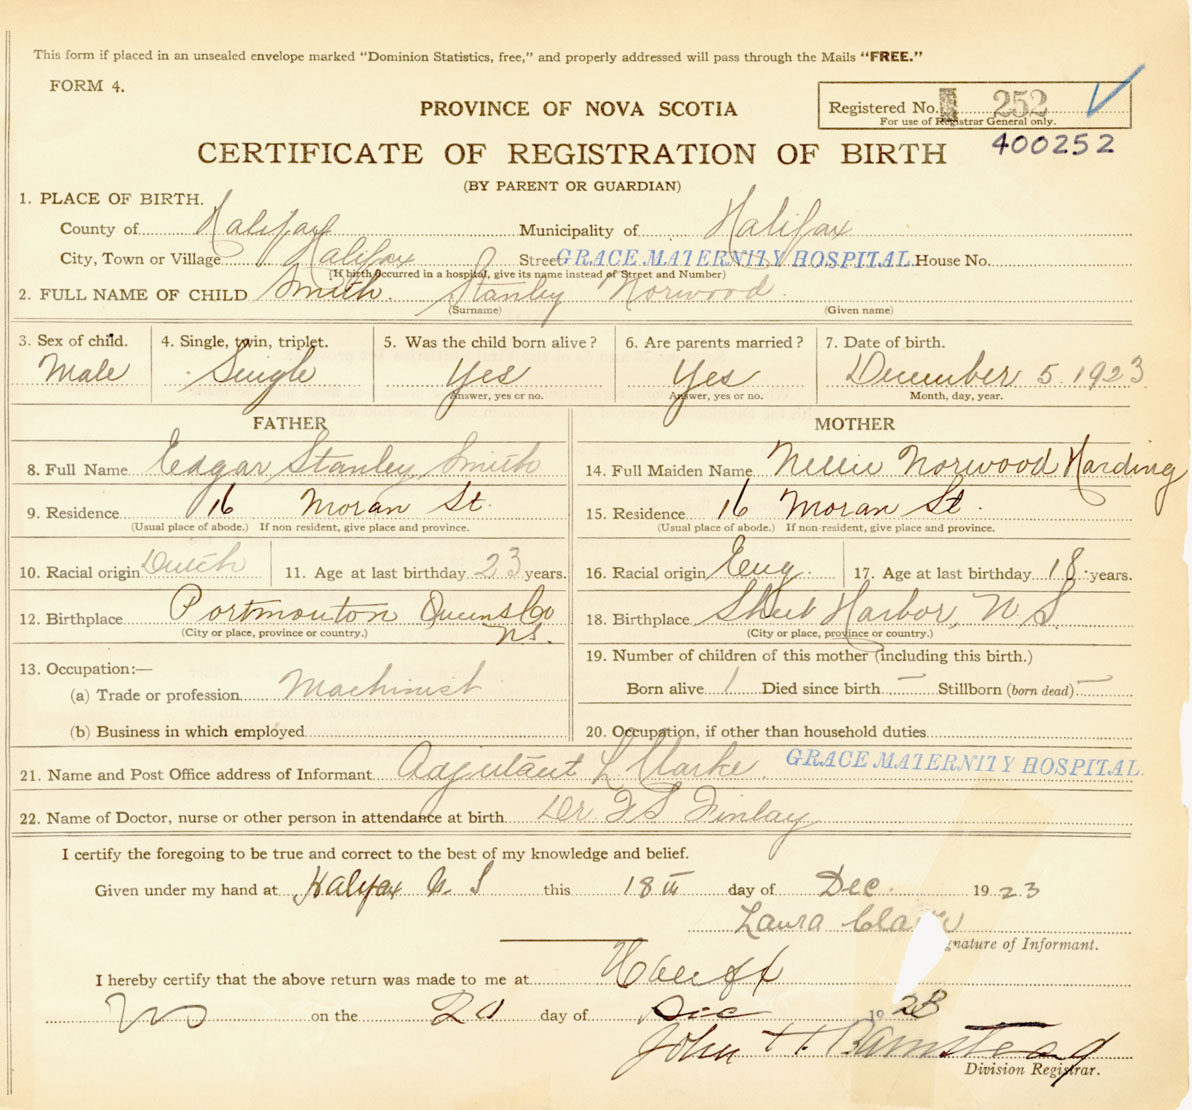 This form if placed in an unsealed envelope marked "Dominion Statistics, free," and properly addressed will pass through the Mails "FREE."
FORM 4.
PROVINCE OF NOVA SCOTIA
Registered No. 252
For use of Registrar General only.
400252
CERTIFICATE OF REGISTRATION OF BIRTH
(BY PARENT OR GUARDIAN)
1. PLACE OF BIRTH.
County of Halifax Municipality of Halifax
City, Town or Village Halifax Street GRACE MATERNITY HOSPITAL. House No.
(If birth occurred in a hospital, give its name instead of Street and Number)
2. FULL NAME OF CHILD Smith. Stanley Norwood
(Surname) (Given name)
3. Sex of child. 4. Single, twin, triplet. 5. Was the child born alive? 6. Are parents married? 7. Date of birth.
Male Single Yes Yes December 5. 1923
Answer, yes or no. Answer, yes or no. Month, day, year.
FATHER MOTHER
8. Full Name Edgar Stanley Smith 14. Full Maiden Name Nellie Norwood Harding
9. Residence 16 Moran St. 15. Residence 16 Moran St.
(Usual place of abode.) If non-resident, give place and province. (Usual place of abode.) If non-resident, give place and province.
10. Racial origin Dutch 11. Age at last birthday 23 years. 16. Racial origin Eng. 17. Age at last birthday 18. years.
12. Birthplace Portmouton Queens Co 18. Birthplace Sheet Harbor, N.S.
N.S.
(City or place, province or country.) (City or place, province or country.)
13. Occupation:— 19. Number of children of this mother (including this birth.)
(a) Trade or profession Machinist Born alive 1 Died since birth — Stillborn (born dead) —
(b) Business in which employed 20. Occupation, if other than household duties
21. Name and Post Office address of Informant Adjutant L Clarke. GRACE MATERNITY HOSPITAL.
22. Name of Doctor, nurse or other person in attendance at birth Dr. Finlay
I certify the foregoing to be true and correct to the best of my knowledge and belief.
Given under my hand at Halifax N. S this 18th day of Dec. 1923
Laura
gnature of Informant.
I hereby certify that the above return was made to me at Halifax
NS on the 20 day of Dec 1923
John H. Barnstead
Division Registrar.